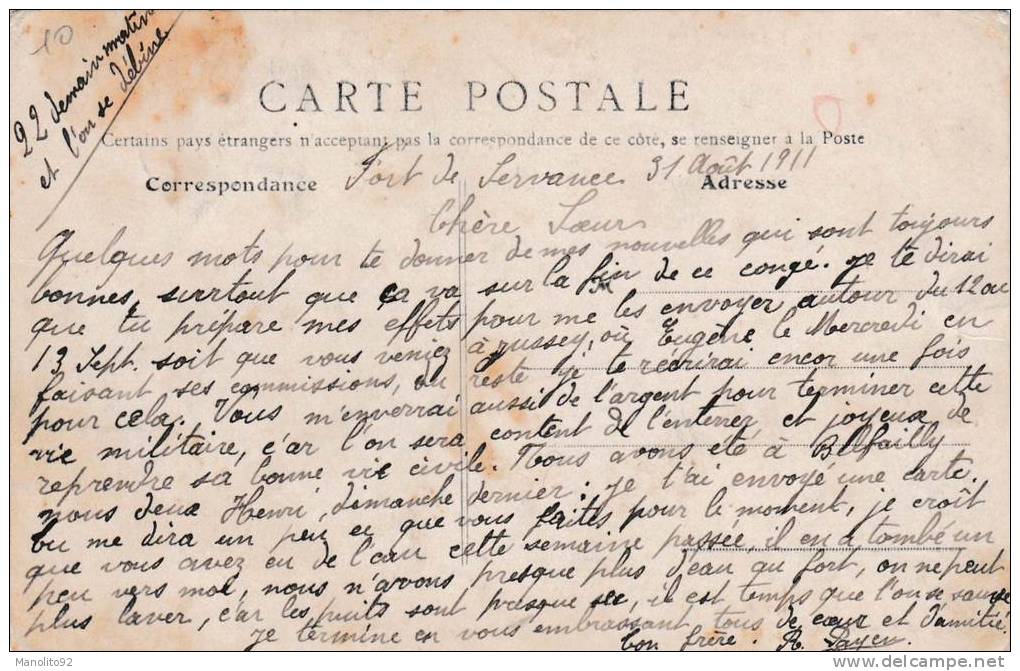 10
22 demain matin
et l'on se débine
CARTE POSTALE
Certains pays étrangers n'acceptent pas la correspondance de ce côté, se renseigner à la Poste
Correspondance Fort de Servance 31 Août 1911 Adresse
Chère Sœur
Quelques mots pour te donner de mes nouvelles qui sont toujours
bonnes, surtout que ça va sur la fin de ce congé. Je te dirai
que tu prépare mes effets pour me les envoyer autour du 12 au
13 Sept. soit que vous veniez à russey, où Eugène le Mercredi en
faisant ses commissions, du reste je te recrirai encor une fois
pour cela. Vous m'enverrai aussi de l'argent pour terminer cette
vie militaire, c'ar l'on sera content de l'enterrez et joyeux de
reprendre sa bonne vie civile. Nous avons été à Belfailly
nous deux Henri, dimanche dernier; je t'ai envoyé une carte.
tu me dira un peu ce que vous faites pour le moment, je croit
que vous avez eu de l'eau cette semaine passée, il en a tombé un
peu vers moi, nous n'avons presque plus d'eau au fort, on ne peut
plus laver, c'ar les puits sont presque sec, il est temps que l'on se sauve
je termine en vous embrassant tous de cœur et d'amitié.
bon frère. R. Payen.
Manolito92
delcampe.net